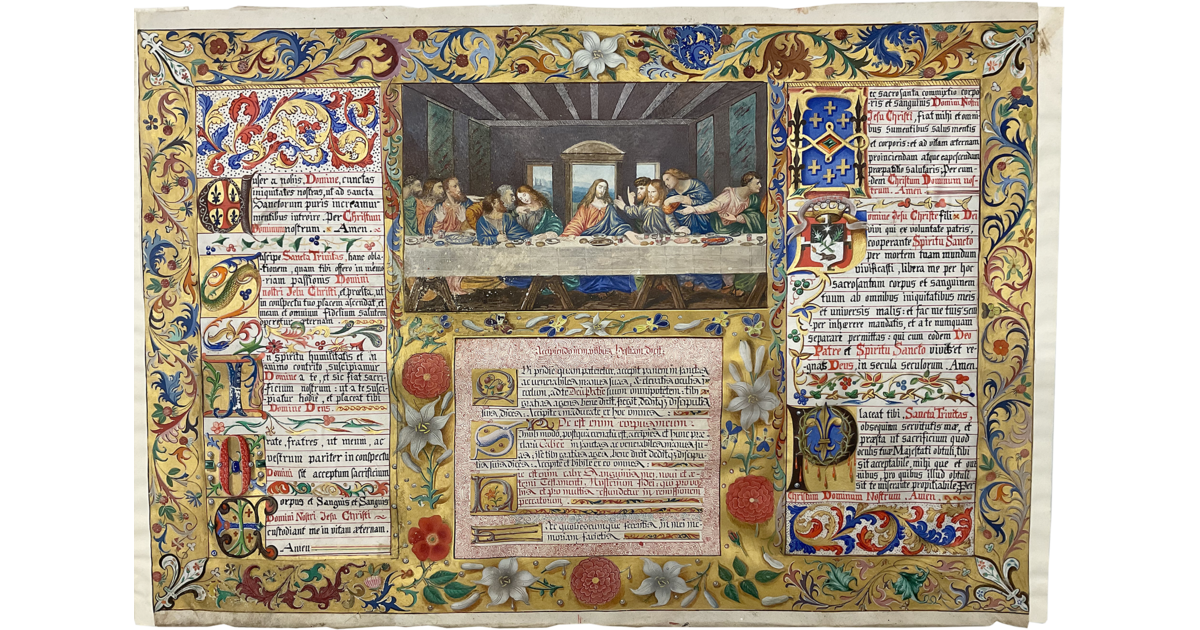 ufer a nobis Domine, cunctas
iniquitates nostras, ut ad sancta
Sanctorum puris
mentibus introire. Per Christum
Dominum nostrum. Amen.
uscipe Sancta Trinitas, hanc obla-
tionem, quam tibi offero in memo-
riam passionis Domini
nostri Jesu Christi,
in conspectu tuo placem ascendat, et
meam et omnium fidelium salutem
opretur æternam
n spiritu humilitatis et in
animo contrito, suscipiamur
Domine a te, et sic fiat sacri-
ficium nostrum: ut a te susci-
piatur hodie, et placeat tibi
Domine Deus.
rate, fratres, ut meum, ac
vestrum pariter in conspectu
Domini sit acceptum sacrificium
orpus et Sanguis et Sanguis
Domini Nostri Jesu Christi
custodiant me in vitam æternam.
Amen
Accipiendo in manibus Hostiam dicit.
Qui pridie quam pateretur, accepit panem in sanctas
ac venerabiles manus suas, & elevatis oculis in
cælum, ad te Deū Patrē suum omnipotentem: tibi
gratias agens, bene dixit, fregit, deditq3 discipulis
suis, dicens: Accipite & manducate ex hoc omnes
Hoc est enim corpus meum.
Simili modo, postquam cenatū est, accipiens et hunc præ-
clarū Calicē in sanctas ac venerabiles manus su-
as, itē tibi gratias agens, bene dixit deditq3 discipu-
lis suis, dicens: Accipite et bibite ex eo omnes
ic est enim calix Sanguinis mei, novi et æ-
terni Testamenti: Mysterium fidei, qui pro vo-
bis et pro multis effundetur in remissionem
peccatorum.
Hæc quotiescumque feceritis, in mei me-
moriam facietis
ec sacrosanta commixtio corpo-
ris et sanguinis Domini Nostri
Jesu Christi, fiat mihi et omni-
bus sumentibus salus mentis
et corporis: et ad vitam æternam
Per eum-
dem Christum Dominum nos-
trum. Amen
omine Jesu Christe fili Dei
vivi qui ex voluntate patris,
cooperante Spiritu Sancto
per mortem tuam mundum
vivificasti, libera me per hoc
sacrosantum corpus et sanguinem
tuum ab omnibus iniquitatibus meis
et universis malis: et fac me tuis sem-
per inhærere mandatis, et a te nunquam
separare permittas: qui cum eodem Deo
Patre et Spiritu Sancto vivis et re-
gnas Deus, in secula seculorum. Amen.
laceat tibi, Sancta Trinitas,
obsequium servitutis meæ, et
præsta ut sacrificium quod
oculis tuæ Majestati obtuli, tibi
sit acceptabile, mihi que et om-
nibus, pro quibus illud obtuli
sit te miserante propitiabile. Per
Christum Dominum Nostrum. Amen.